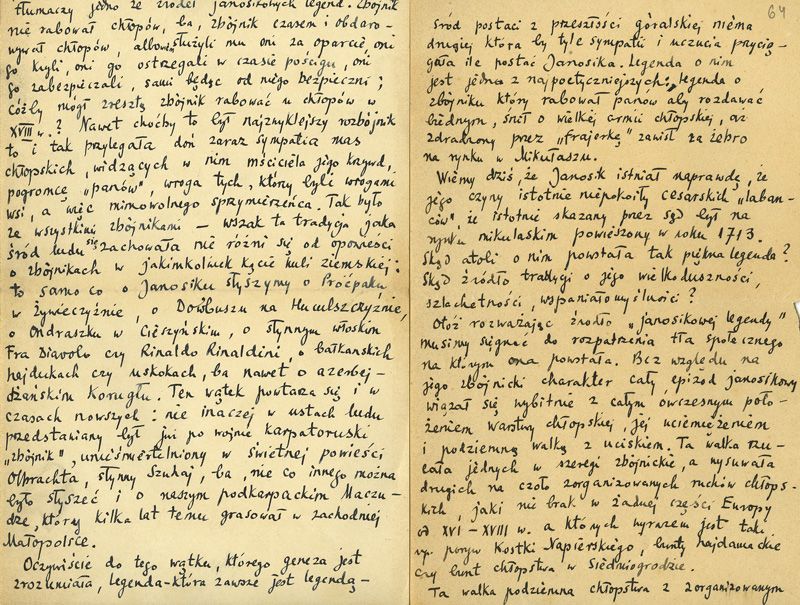 tłumaczy jedno ze źródeł janosikowych legend. Zbójnik
nie rabował chłopów, ba, zbójnik czasem i obdaro-
wywał chłopów, albowiem służyli mu oni za oparcie, oni
go kryli, oni go ostrzegali w czasie pościgu, oni
go zabezpieczali, sami będąc od niego bezpieczni;
cóżby mógł zresztą zbójnik rabować u chłopów w
XVIII w.? Nawet choćby to był najzwyklejszy rozbójnik
to i tak przylegała doń zaraz sympatia mas
chłopskich, widzących w nim mściciela jego krzywd,
pogromcę „panów", wroga tych, którzy byli wrogami
wsi, a więc mimowolnego sprzymierzeńca. Tak było
ze wszystkimi zbójnikami – wszak ta tradycja jaka
śród ludu się zachowała nie różni się od opowieści
o zbójnikach w jakimkolwiek kącie kuli ziemskiej:
to samo co o Janosiku słyszymy o Proćpaku
w Żywiecczyźnie, o Dobbuszu na Huculszczyźnie,
o Ondraszku w Cieszyńskim, o słynnym włoskim
Fra Diavolo czy Rinaldo Rinaldini, o bałkańskich
hejdukach czy uskokach, ba nawet o azerbej-
dżańskim Koroglu. Ten wątek powtarza się i w
czasach nowszych: nie inaczej w ustach ludu
przedstawiany był już po wojnie karpatoruski
„zbójnik", unieśmiertelniony w świetnej powieści
Olbrachta, słynny Szuhaj, ba, nie co innego można
było słyszeć i o naszym podkarpackim Maczu-
dze, który kilka lat temu grasował w zachodniej
Małopolsce.
Oczywiście do tego wątku, którego geneza jest
zrozumiała, legenda – która zawsze jest legendą –
64
Śród postaci z przeszłości góralskiej niema
drugiej która by tyle sympatii i uczucia przycią-
gała ile postać Janosika. Legenda o nim
jest jedna z najpoetyczniejszych: legenda o
zbójniku który rabował panów aby rozdawać
biednym, śnił o wielkiej armii chłopskiej, aż
zdradzony przez „frajerkę" zawisł za żebro
na rynku w Mikułaszu.
Wiemy dziś, że Janosik istniał naprawdę, że
jego czyny istotnie niepokoiły cesarskich „laban-
ców" że istotnie skazany przez sąd był na
rynku mikulaskim powieszony w roku 1713.
Skąd atoli o nim powstała tak piękna legenda?
Skąd źródło tradycji o jego wielkoduszności,
szlachetności, wspaniałomyślności?
Otóż rozważając źródło „janosikowej legendy"
musimy sięgnąć do rozpatrzenia tła społecznego
na którym ona powstała. Bez względu na
jego zbójnicki charakter cały epizod janosikowy
wiązał się wybitnie z całym ówczesnym poło-
żeniem warstwy chłopskiej, jej uciemiężeniem
i podziemną walką z uciskiem. Ta walka rzu-
cała jednych w szeregi zbójnickie, a wysuwała
drugich na czoło zorganizowanych ruchów chłops-
kich, jaki nie brak w żadnej części Europy
od XVI – XVIII w. a których wyrazem jest taki
np. poryw Kostki Napierskiego, bunty hajdamackie
czy bunt chłopstwa w Siedmiogrodzie.
Ta walka podziemna chłopstwa z zorganizowanym